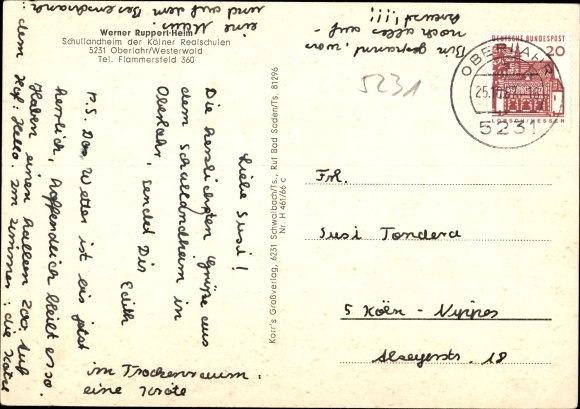 Werner Ruppert-Heim
Schullandheim der Kölner Realschulen
5231 Oberlahr/Westerwald
Tel. Flammersfeld 360
Liebe Susi!
Die herzlichsten Grüße aus
dem Schullandheim in
Oberlahr, sendet Dir
Edith
P.S. Das Wetter ist bis jetzt
herrlich, hoffendlich bleibt es so.
Haben einen halben Zoo. Auf
dem Hof: Hello. Im Zimmer: die Katze
im Trockenraum:
eine Kröte
eine Maus
und auf dem
Bin gespannt, was
noch alles auf-
kreuzt!!!!
Korr's Großverlag, 6231 Schwalbach/Ts., Ruf Bad Soden/Ts. 81296
Nr. H 461/66 c
5231
DEUTSCHE BUNDESPOST
20
LORSCH/HESSEN
OBERLAHR
5231
Frl.
Susi Tondera
5 Köln - Nippes
Alzeyerstr. 18